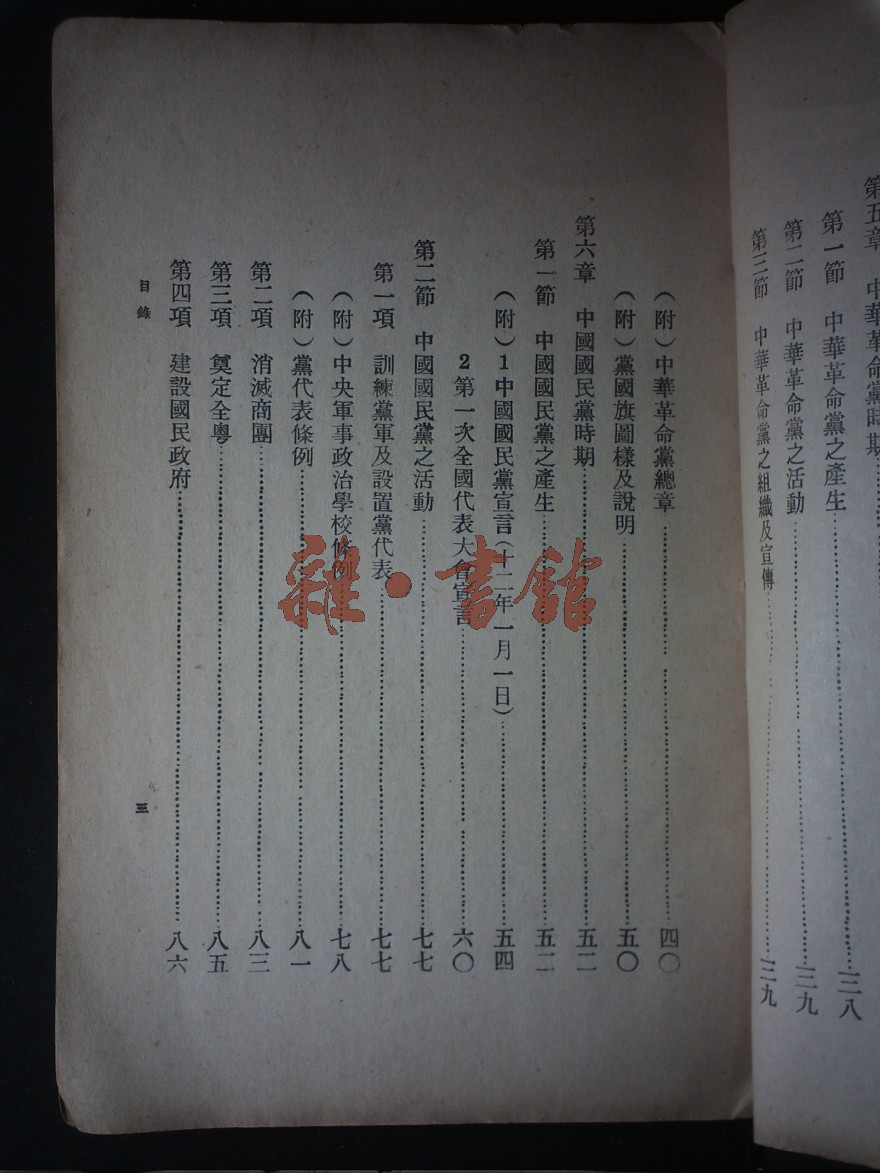 第五章 中華革命黨時期
第一節 中華革命黨之產生……三八
第二節 中華革命黨之活動……三九
第三節 中華革命黨之組織及宣傳……三九
（附）中華革命黨總章……四〇
（附）黨國旗圖樣及說明……五〇
第六章 中國國民黨時期……五二
第一節 中國國民黨之產生……五二
（附）1中國國民黨宣言（十二年一月一日）……五四
2第一次全國代表大會宣言……六〇
第二節 中國國民黨之活動……七七
第一項 訓練黨軍及設置黨代表……七七
（附）中央軍事政治學校條例……七八
（附）黨代表條例……八一
第二項 消滅商團……八三
第三項 奠定全粵……八五
第四項 建設國民政府……八六
目錄
三
雜·書館